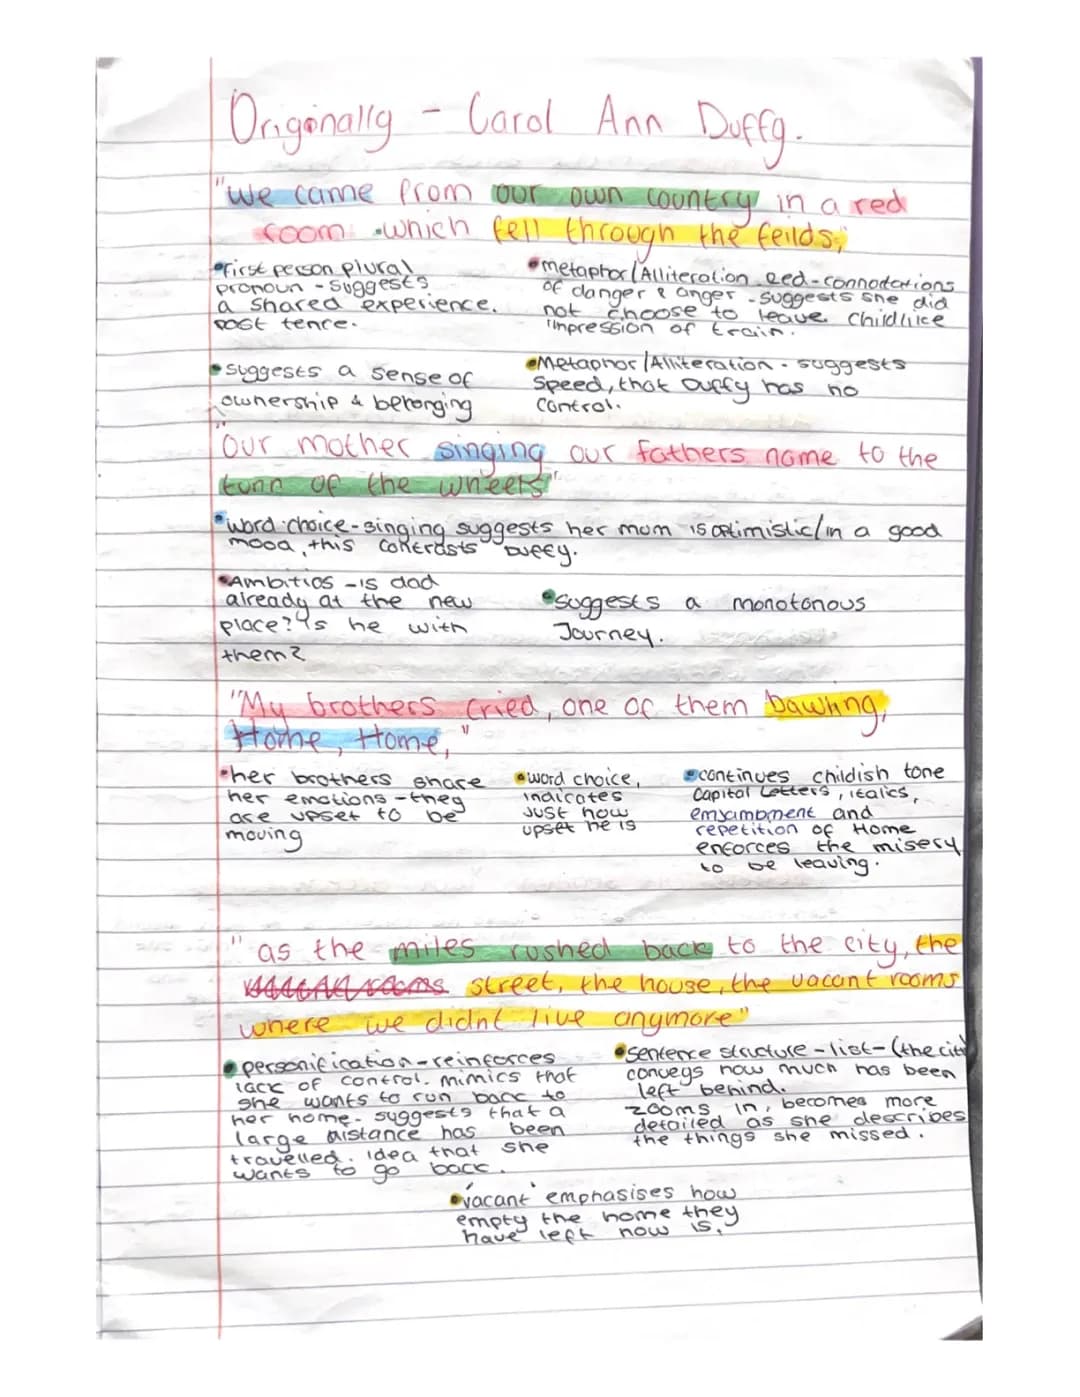 Originally - Carol Ann Duffy.
"We came from our own country in a red
room which fell through the feilds,"
•First person plural
pronoun - suggests
a shared experience.
past tence.
•metaphor/Alliteration red-connotations
of danger & anger - suggests she did
not choose to leave. Childlike
impression of train.
•suggests a sense of
ownership & belonging
•Metaphor/Alliteration - suggests
speed, that Duffy has no
control.
"Our mother singing our fathers name to the
turn of the wheels"
•word choice-singing suggests her mom is optimistic/in a good
mood, this contrasts Duffy.
•Ambitios - is dad
already at the new
place? Is he with
them?
•suggests a monotonous
Journey.
"My brothers cried, one of them bawling,
Home, Home,"
•her brothers share
her emotions - they
are upset to be
moving
•word choice,
indicates
just how
upset he is
•continues childish tone
Capital Letters, italics,
enjambment and
repetition of Home
enforces the misery
to be leaving.
"as the miles rushed back to the city, the
street, the house, the vacant rooms
where we didnt live anymore"
•personification-reinforces
lack of control. mimics that
she wants to run back to
her home. suggests that a
large distance has been
travelled. idea that she
wants to go back.
•Sentence structure - list - (the city
conveys how much has been
left behind.
zooms in, becomes more
detailed as she describes
the things she missed.
•'vacant' emphasises how
empty the home they
have left now is.